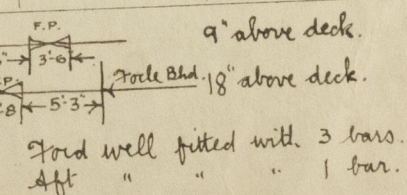 F.P.
9" above deck.
3'-6"
Focle Bhd. 18" above deck.
5'-3"
Ford well fitted with 3 bars.
Aft " " " 1 bar.